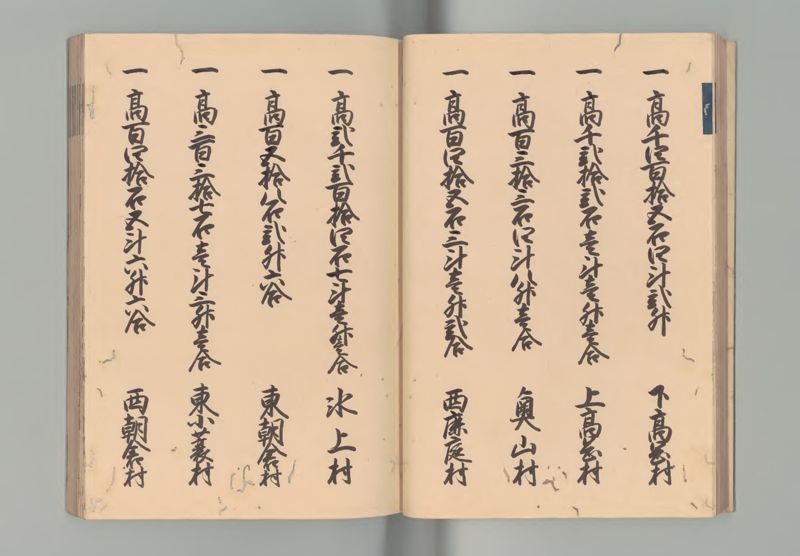 一 高千四百拾五石四斗弐升 下高岡村
一 高千弐拾弐石壱斗壱升壱合 上高岡村
一 高百三拾三石四斗八升壱合 奥山村
一 高百四拾五石三斗壱升弐合 西鹿庭村
一 高弐千弐百拾四石七斗壱升壱合 氷上村
一 高百五拾八石弐升六合 東朝倉村
一 高三百三拾七石壱斗三升壱合 東小蓑村
一 高百四拾石五斗六升六合 西朝倉村